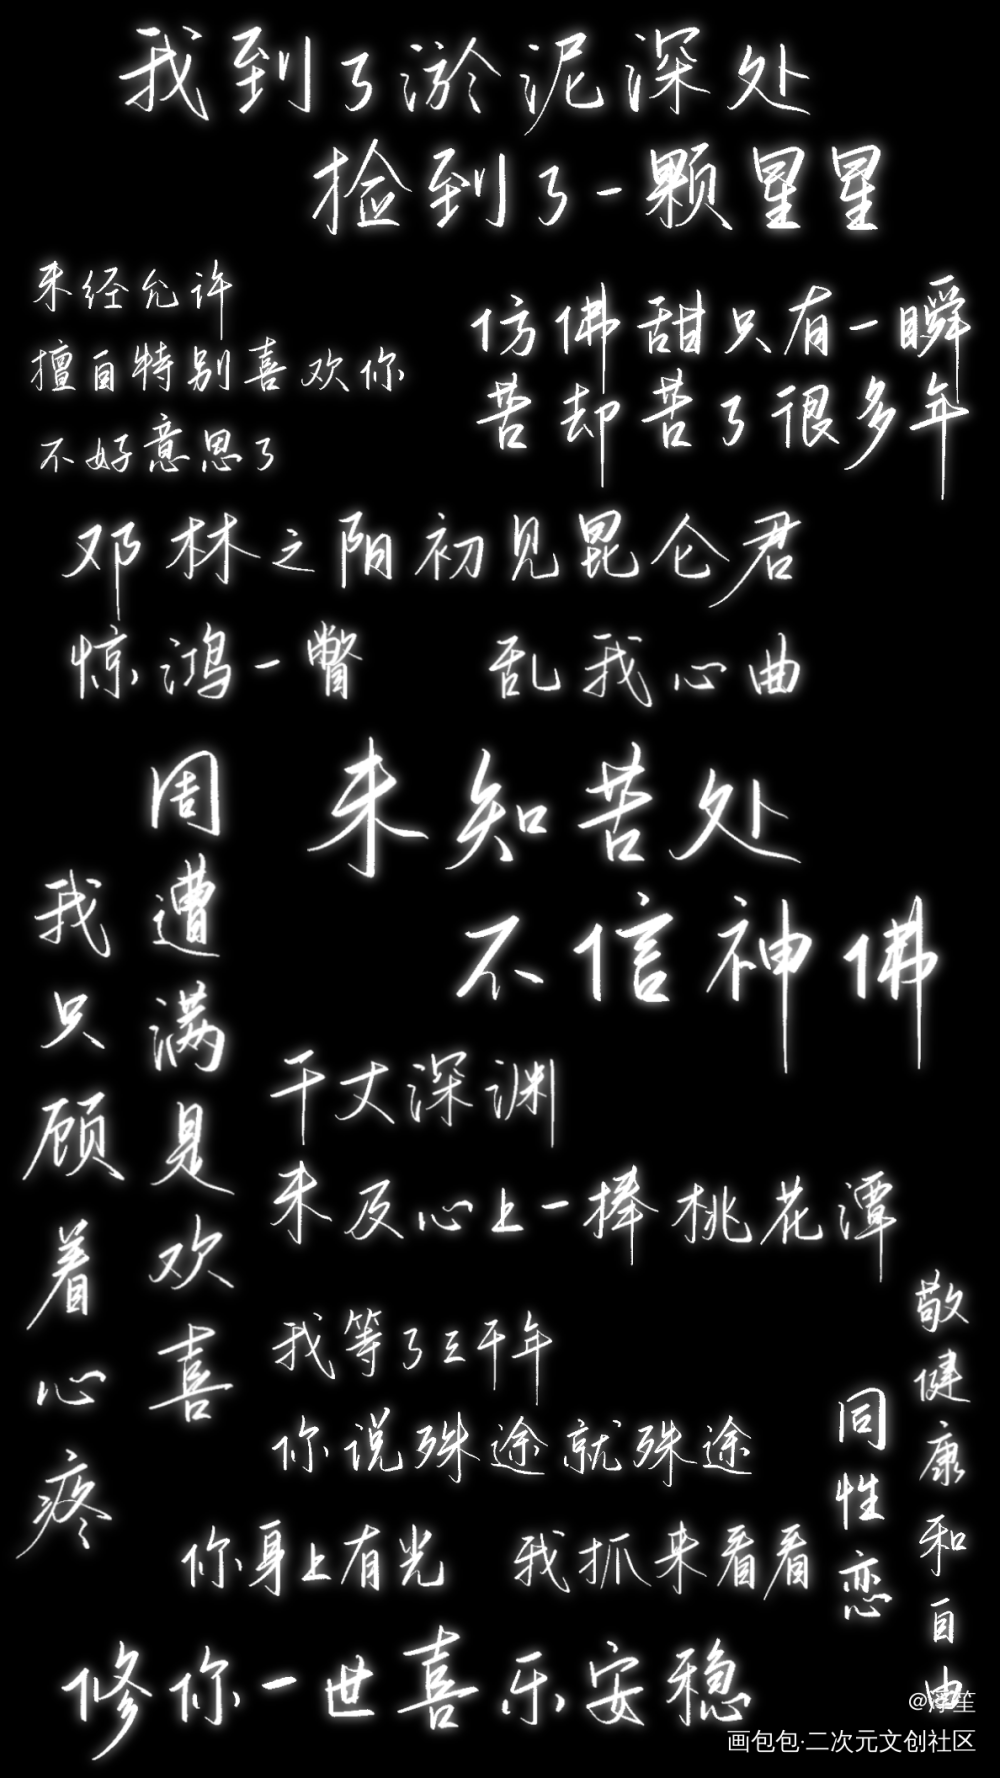 我到了淤泥深处
捡到了一颗星星
未经允许
擅自特别喜欢你
不好意思了
仿佛甜只有一瞬
苦却苦了很多年
邓林之阴初见昆仑君
惊鸿一瞥 乱我心曲
未知苦处
不信神佛
周遭满是欢喜
我只顾着心疼
千丈深渊
未及心上一捧桃花潭
我等了三千年
你说殊途就殊途
敬健康和自由
同性恋
你身上有光 我抓来看看
修你一世喜乐安稳
@浮笙
画包包·二次元文创社区